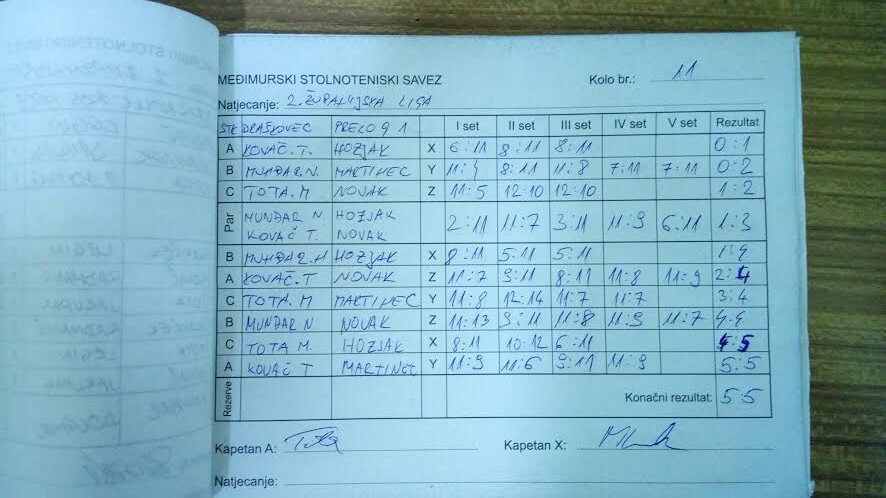 MEĐIMURSKI STOLNOTENISKI SAVEZ
Kolo br.: 11
Natjecanje: 2. ŽUPANIJSKA LIGA
STK DRAŠKOVEC PRELOG 1 I set II set III set IV set V set Rezultat
A KOVAČ.T. HOZJAK X 6:11 8:11 8:11 0:1
B MUNĐAR.N. MARTINEC Y 8:11 11:8 7:11 7:11 0:2
C TOTA.M NOVAK Z 11:5 12:10 12:10 1:2
Par MUNDAR N. HOZJAK 2:11 11:7 3:11 11:9 6:11 1:3
KOVAČ T. NOVAK
B MUNDAR.N HOZJAK X 8:11 5:11 5:11 1:4
A KOVAČ.T NOVAK Z 11:7 9:11 8:11 11:8 11:9 2:4
C TOTA.M MARTINEC Y 11:8 12:14 11:7 11:7 3:4
B MUNDAR N. NOVAK Z 11:13 9:11 11:8 11:9 11:7 4:4
C TOTA M. HOZJAK X 8:11 10:12 6:11 4:5
A KOVAČ T MARTINEC Y 11:9 11:6 9:11 11:9 5:5
Rezerve Konačni rezultat: 5:5
Kapetan A: Kapetan X:
Natjecanje: